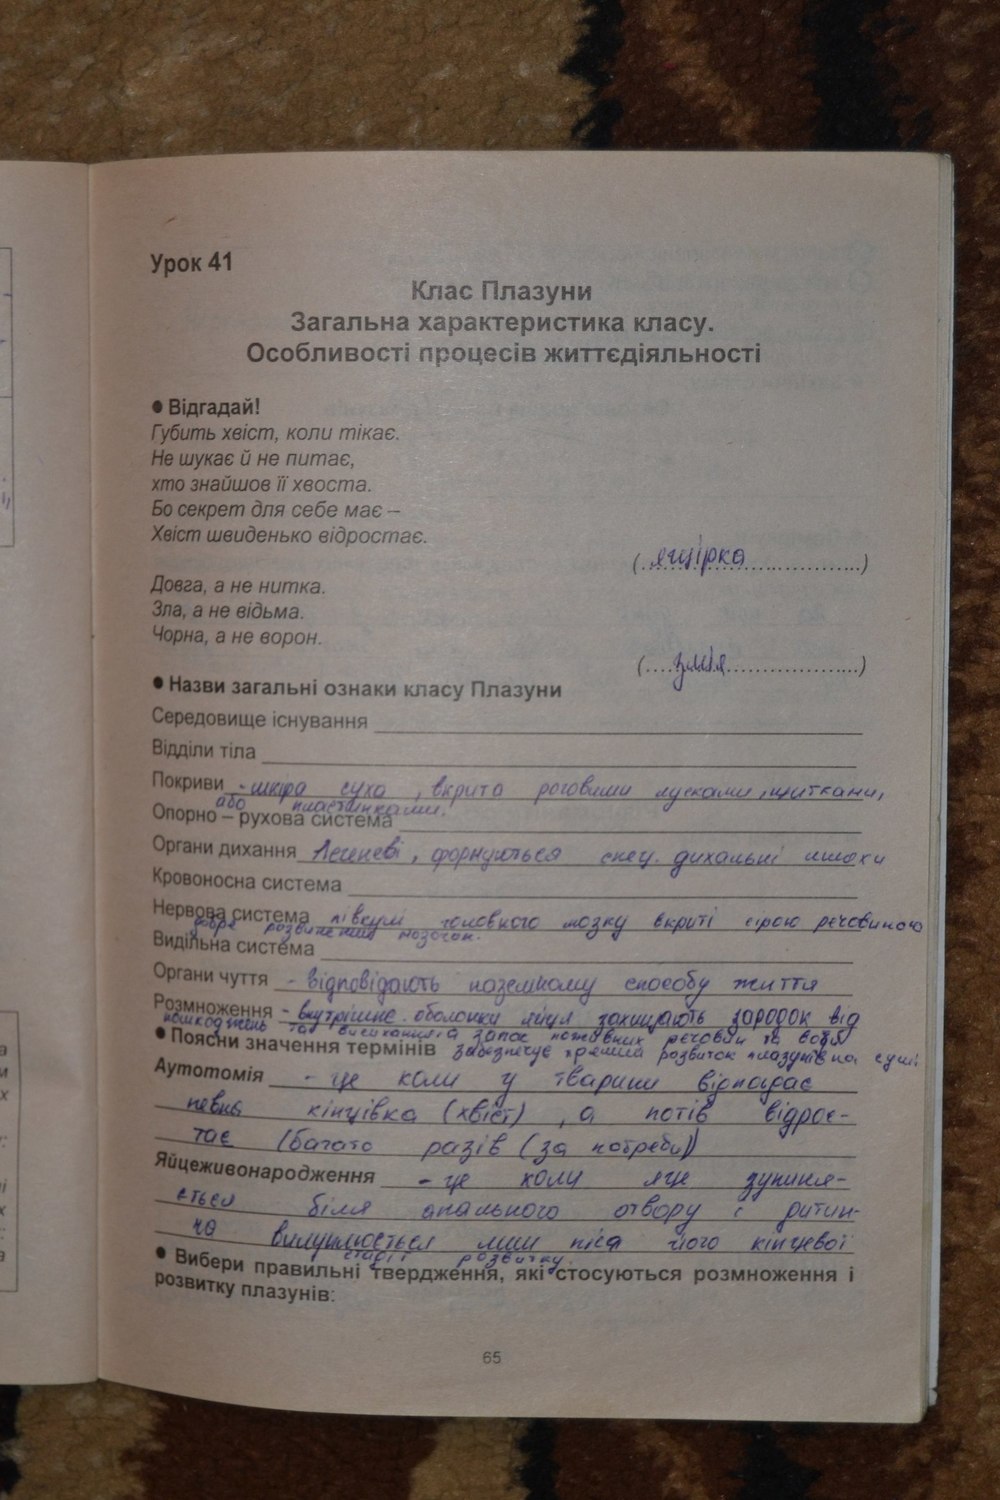 Урок 41
Клас Плазуни
Загальна характеристика класу.
Особливості процесів життєдіяльності
● Відгадай!
Губить хвіст, коли тікає.
Не шукає й не питає,
хто знайшов її хвоста.
Бо секрет для себе має –
Хвіст швиденько відростає.
(ящірка)
Довга, а не нитка.
Зла, а не відьма.
Чорна, а не ворон.
(змія)
● Назви загальні ознаки класу Плазуни
Середовище існування
Відділи тіла
Покриви - шкіра суха, вкрита роговими лусками, щитками,
або пластинками.
Опорно – рухова система
Органи дихання Легеневі, формуються спец. дихальні шляхи
Кровоносна система
Нервова система півкулі головного мозку вкриті сірою речовиною
добре розвинений мозочок.
Видільна система
Органи чуття - відповідають наземному способу життя
Розмноження - внутрішнє. оболонки яйця захищають зародок від
пошкоджень та висихання, а запас поживних речовин та води
● Поясни значення термінів забезпечує прямий розвиток плазунів на суші.
Аутотомія - це коли у тварини відпадає
певна кінцівка (хвіст), а потів відрос-
тає (багато разів (за потреби))
Яйцеживонародження - це коли яйце зупиня-
ється біля анального отвору і дитин-
ча вилуплюється лиш піся його кінцевої
стадії розвитку.
● Вибери правильні твердження, які стосуються розмноження і
розвитку плазунів:
65